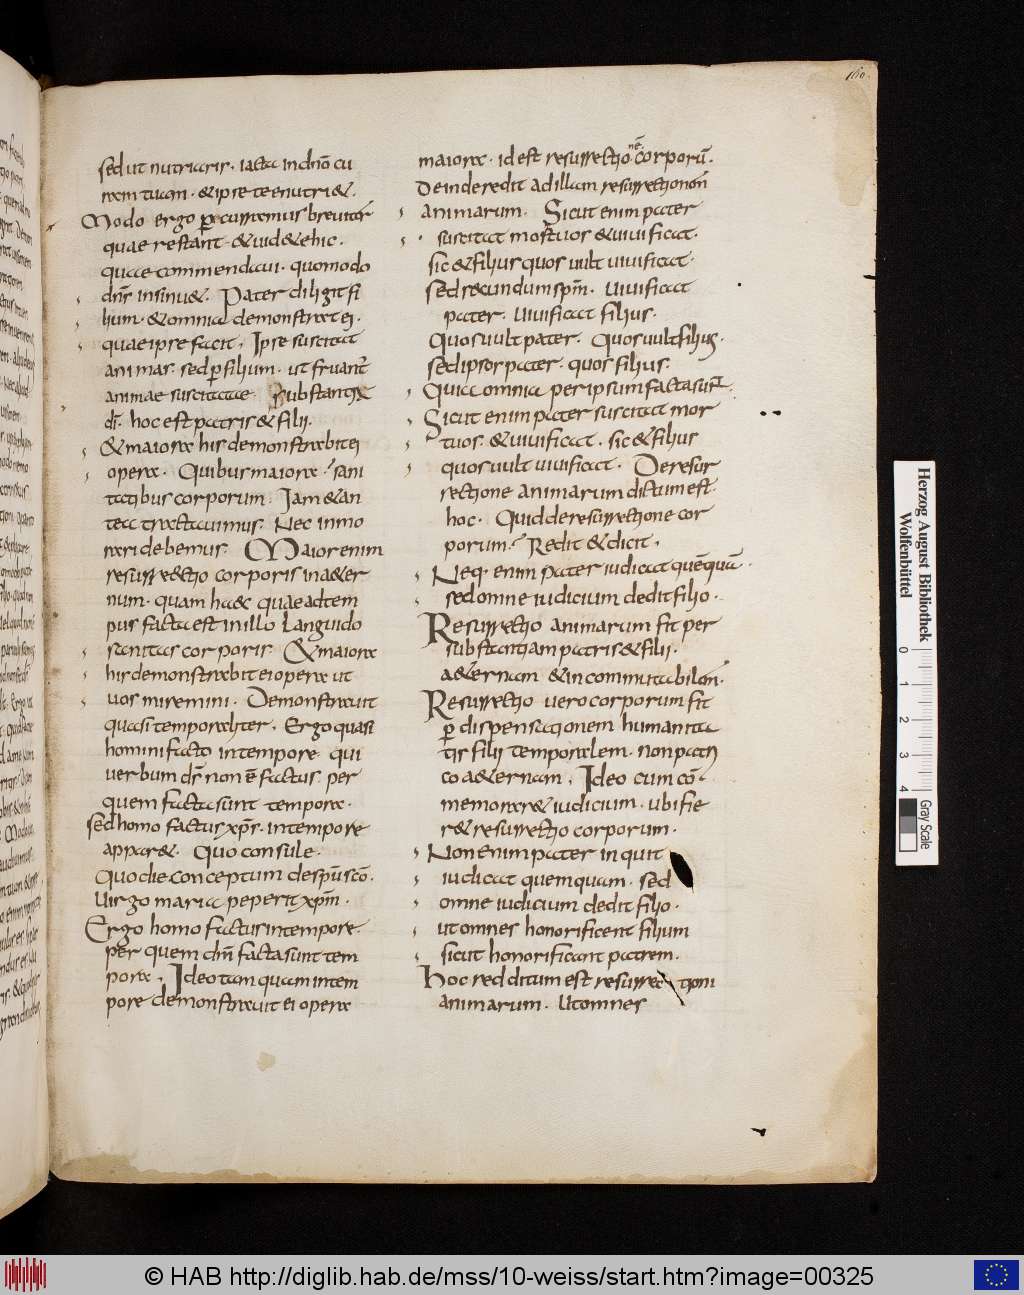 160.
sed ut nutriaris. iacta in dn̄o cu
ram tuam. & ipse te enutri&.
Modo ergo p̱curramus breuiter
quae restant. & uid&e hic.
quae commendaui. quomodo
dn̄s insinu&. Pater diligit fi
lium. & omnia demonstrat ei.
quae ipse facit. Ipse suscitat
animas. sed p̱ filium. ut fruant̄
animae suscitatae substantia
dī. hoc est patris & filii.
& maiora his demonstrabit ei
opera. Quibus maiora? sani
tatibus corporum. Iam & an
tea tractauimus. Nec inmo
rari debemus. Maior enim
resurrectio corporis in a&er
num. quam haec quae ad tem
pus facta est in illo languido
sanitas corporis. & maiora
his demonstrabit ei opera ut
uos miremini. Demonstrauit
quasi temporaliter. Ergo quasi
homini facto in tempore. qui
uerbum dī non ē factus. per
quem facta sunt tempora.
sed homo factus xp̄s. in tempore
appar&. Quo consule.
Quo die conceptum de sp̄u sc̄o.
Uirgo maria peperit xp̄m.
Ergo homo factus in tempore.
per quem dm̄ facta sunt tem
pora. Ideo tamquam in tem
pore demonstrauit ei opera
maiora. id est resurrectionē corporū.
Deinde redit ad illam resurrectionem
animarum. Sicut enim pater
suscitat mortuos & uiuificat.
sic & filius quos uult uiuificat.
Sed secundum sp̄m. Uiuificat
pater. Uiuificat filius.
Quos uult pater. Quos uult filius.
Sed ipsos pater. quos filius.
Quia omnia per ipsum facta sunt
Sicut enim pater suscitat mor
tuos. & uiuificat. sic & filius
quos uult uiuificat. De resur
rectione animarum dictum est
hoc. Quid de resurrectione cor
porum? Redit & dicit.
Neq. enim pater iudicat quēquā.
sed omne iudicium dedit filio.
Resurrectio animarum fit per
substantiam patris & filii.
a&ernam & incommutabilem.
Resurrectio uero corporum fit
p̱ dispensationem humanita
tis filii temporalem. non patri
coa&ernam. Ideo cum cō
memorar& iudicium. ubi fie
r& resurrectio corporum.
Non enim pater inquit
iudicat quemquam. sed
omne iudicium dedit filio.
ut omnes honorificent filium
sicut honorificant patrem.
Hoc redditum est resurrectioni
animarum. Ut omnes
Herzog August Bibliothek
Wolfenbüttel
0 1 2 3 4
Gray Scale
© HAB http://diglib.hab.de/mss/10-weiss/start.htm?image=00325